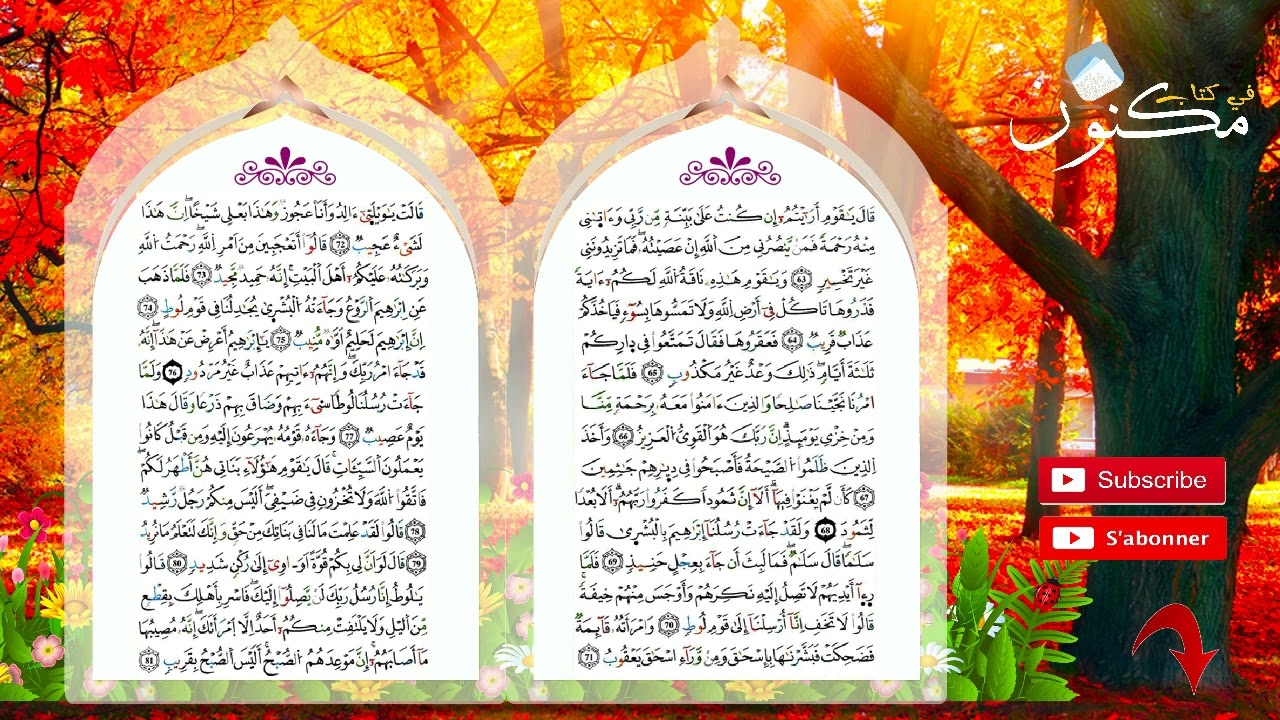 قَالَ يَٰقَوْمِ أَرَٰيْتُمُۥ إِن كُنتُ عَلَىٰ بَيِّنَةٍ مِّن رَّبِّي وَءَاتٜىٰنِي
مِنْهُ رَحْمَةً فَمَنْ يَّنصُرُنِي مِنَ اَللَّهِ إِنْ عَصَيْتُهُۥ فَمَا تَزِيدُونَنِي
غَيْرَ تَخْسِيرٍ 63 وَيَٰقَوْمِ هَٰذِهِۦ نَاقَةُ اُللَّهِ لَكُمُۥ ءَايَةً
فَذَرُوهَا تَاكُلْ فِي أَرْضِ اِللَّهِ وَلَا تَمَسُّوهَا بِسُوٓءٍ فَيَاخُذَكُمْ
عَذَابٌ قَرِيبٌ 64 فَعَقَرُوهَا فَقَالَ تَمَتَّعُوا فِي دِارِكُمْ
ثَلَٰثَةَ أَيَّامٍ ذَٰلِكَ وَعْدٌ غَيْرُ مَكْذُوبٍ 65 فَلَمَّا جَآءَ
امْرُنَا نَجَّيْنَا صَٰلِحًا وَالذِينَ ءَامَنُوا مَعَهُۥ بِرَحْمَةٍ مِّنَّا
وَمِنْ خِزْيِ يَوْمَئِذٍ إِنَّ رَبَّكَ هُوَ اَلْقَوِيُّ الْعَزِيزُ 66 وَأَخَذَ
اَلذِينَ ظَلَمُوا اُلصَّيْحَةُ فَأَصْبَحُوا فِي دِيٰرِهِمْ جَٰثِمِينَ
67 كَأَن لَّمْ يَغْنَوْا فِيهَا أَلَا إِنَّ ثَمُودًا كَفَرُوا رَبَّهُمُۥ أَلَا بُعْدًا
لِّثَمُودَ 68 وَلَقَدْ جَآءَتْ رُسُلُنَا إِبْرَٰهِيمَ بِالْبُشْرٜىٰ قَالُوا
سَلَٰمًا قَالَ سَلَٰمٌ فَمَا لَبِثَ أَن جَآءَ بِعِجْلٍ حَنِيذٍ 69 فَلَمَّا
رَءٜآ أَيْدِيَهُمْ لَا تَصِلُ إِلَيْهِ نَكِرَهُمْ وَأَوْجَسَ مِنْهُمْ خِيفَةً
قَالُوا لَا تَخَفِ اِنَّا أُرْسِلْنَا إِلَىٰ قَوْمِ لُوطٍ 70 وَامْرَأَتُهُۥ قَآئِمَةٌ
فَضَحِكَتْ فَبَشَّرْنَٰهَا بِإِسْحَٰقَ وَمِنْ وَّرَآءِ اسْحَٰقَ يَعْقُوبُ 71
قَالَتْ يَٰوَيْلَتٜىٰ ءَالِدُ وَأَنَا عَجُوزٌ وَهَٰذَا بَعْلِي شَيْخًا إِنَّ هَٰذَا
لَشَيْءٌ عَجِيبٌ 72 قَالُوا أَتَعْجَبِينَ مِنَ اَمْرِ اِللَّهِ رَحْمَتُ اُللَّهِ
وَبَرَكَٰتُهُۥ عَلَيْكُمُۥ أَهْلَ اَلْبَيْتِ إِنَّهُۥ حَمِيدٌ مَّجِيدٌ 73 فَلَمَّا ذَهَبَ
عَنِ اِبْرَٰهِيمَ اَلرَّوْعُ وَجَآءَتْهُ اُلْبُشْرٜىٰ يُجَٰدِلُنَا فِي قَوْمِ لُوطٍ 74
اِنَّ إِبْرَٰهِيمَ لَحَلِيمٌ اَوَّٰهٌ مُّنِيبٌ 75 يَٰإِبْرَٰهِيمُ أَعْرِضْ عَنْ هَٰذَا إِنَّهُۥ
قَدْ جَآءَ امْرُ رَبِّكَ وَإِنَّهُمُۥ ءَاتِيهِمْ عَذَابٌ غَيْرُ مَرْدُودٍ 76 وَلَمَّا
جَآءَتْ رُسُلُنَا لُوطًا سِيٓءَ بِهِمْ وَضَاقَ بِهِمْ ذَرْعًا وَقَالَ هَٰذَا
يَوْمٌ عَصِيبٌ 77 وَجَآءَهُۥ قَوْمُهُۥ يُهْرَعُونَ إِلَيْهِ وَمِن قَبْلُ كَانُوا
يَعْمَلُونَ اَلسَّيِّـَٔاتِ قَالَ يَٰقَوْمِ هَٰؤُلَآءِ بَنَاتِي هُنَّ أَطْهَرُ لَكُمْ
فَاتَّقُوا اُللَّهَ وَلَا تُخْزُونِ فِي ضَيْفِيَ أَلَيْسَ مِنكُمْ رَجُلٌ رَّشِيدٌ
78 قَالُوا لَقَدْ عَلِمْتَ مَا لَنَا فِي بَنَاتِكَ مِنْ حَقٍّ وَإِنَّكَ لَتَعْلَمُ مَا نُرِيدُ
79 قَالَ لَوَ اَنَّ لِي بِكُمْ قُوَّةً اَوَ اٰوِي إِلَىٰ رُكْنٍ شَدِيدٍ 80 قَالُوا
يَٰلُوطُ إِنَّا رُسُلُ رَبِّكَ لَنْ يَّصِلُوا إِلَيْكَ فَاسْرِ بِأَهْلِكَ بِقِطْعٍ
مِّنَ اَليْلِ وَلَا يَلْتَفِتْ مِنكُمُۥ أَحَدٌ اِلَّا اَمْرَأَتَكَ إِنَّهُۥ مُصِيبُهَا
مَا أَصَابَهُمُۥ إِنَّ مَوْعِدَهُمُ اُلصُّبْحُ أَلَيْسَ اَلصُّبْحُ بِقَرِيبٍ 81
في كتاب
مكنون
Subscribe
S'abonner